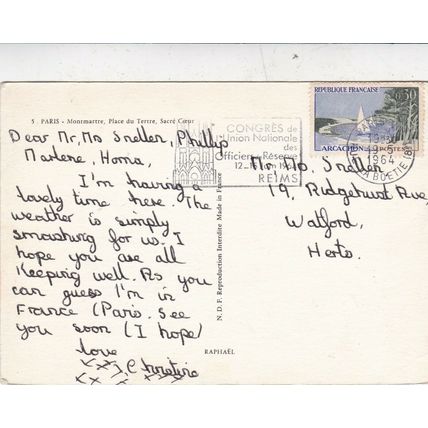 5 PARIS - Montmartre, Place du Tertre, Sacré Cœur
Dear Mr, Mrs Sneller, Phillip
Marlene, 
I'm having a
lovely time here. The
weather is simply
smashing for us. I
hope you are all
keeping well. As you
can guess I'm in
France (Paris. See
you soon (I hope)
love
xx Christine
xx xxxx
RAPHAËL
N. D. F. Reproduction Interdite Made in France
CONGRÈS de
L'Union Nationale
des
Officiers Réserve
REIMS
REPUBLIQUE FRANÇAISE
ARCACHON
POSTES
1964
BOETIE (8)
Mr, Mrs. Sneller
19, Ridgehurst Ave,
Watford,
Herts.